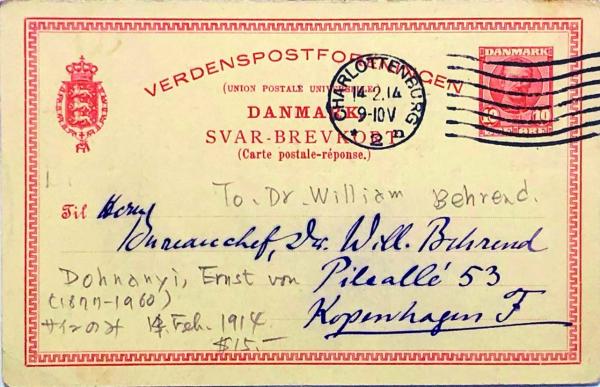 VERDENSPOSTFORENINGEN
(UNION POSTALE UNIVERSELLE)
DANMARK
SVAR-BREVKORT
(Carte postale-réponse.)
CHARLOTTENBURG
14.2.14
9-10V
* 2 n
DANMARK
10 10
ØRE
To. Dr. William Behrend.
Til Herrn
Bureauchef, Dr. Will. Behrend
Dohnanyi, Ernst von
Pileallé 53
(1877-1960)
Kopenhagen F
サインのみ 14 Feb. 1914
$15.-